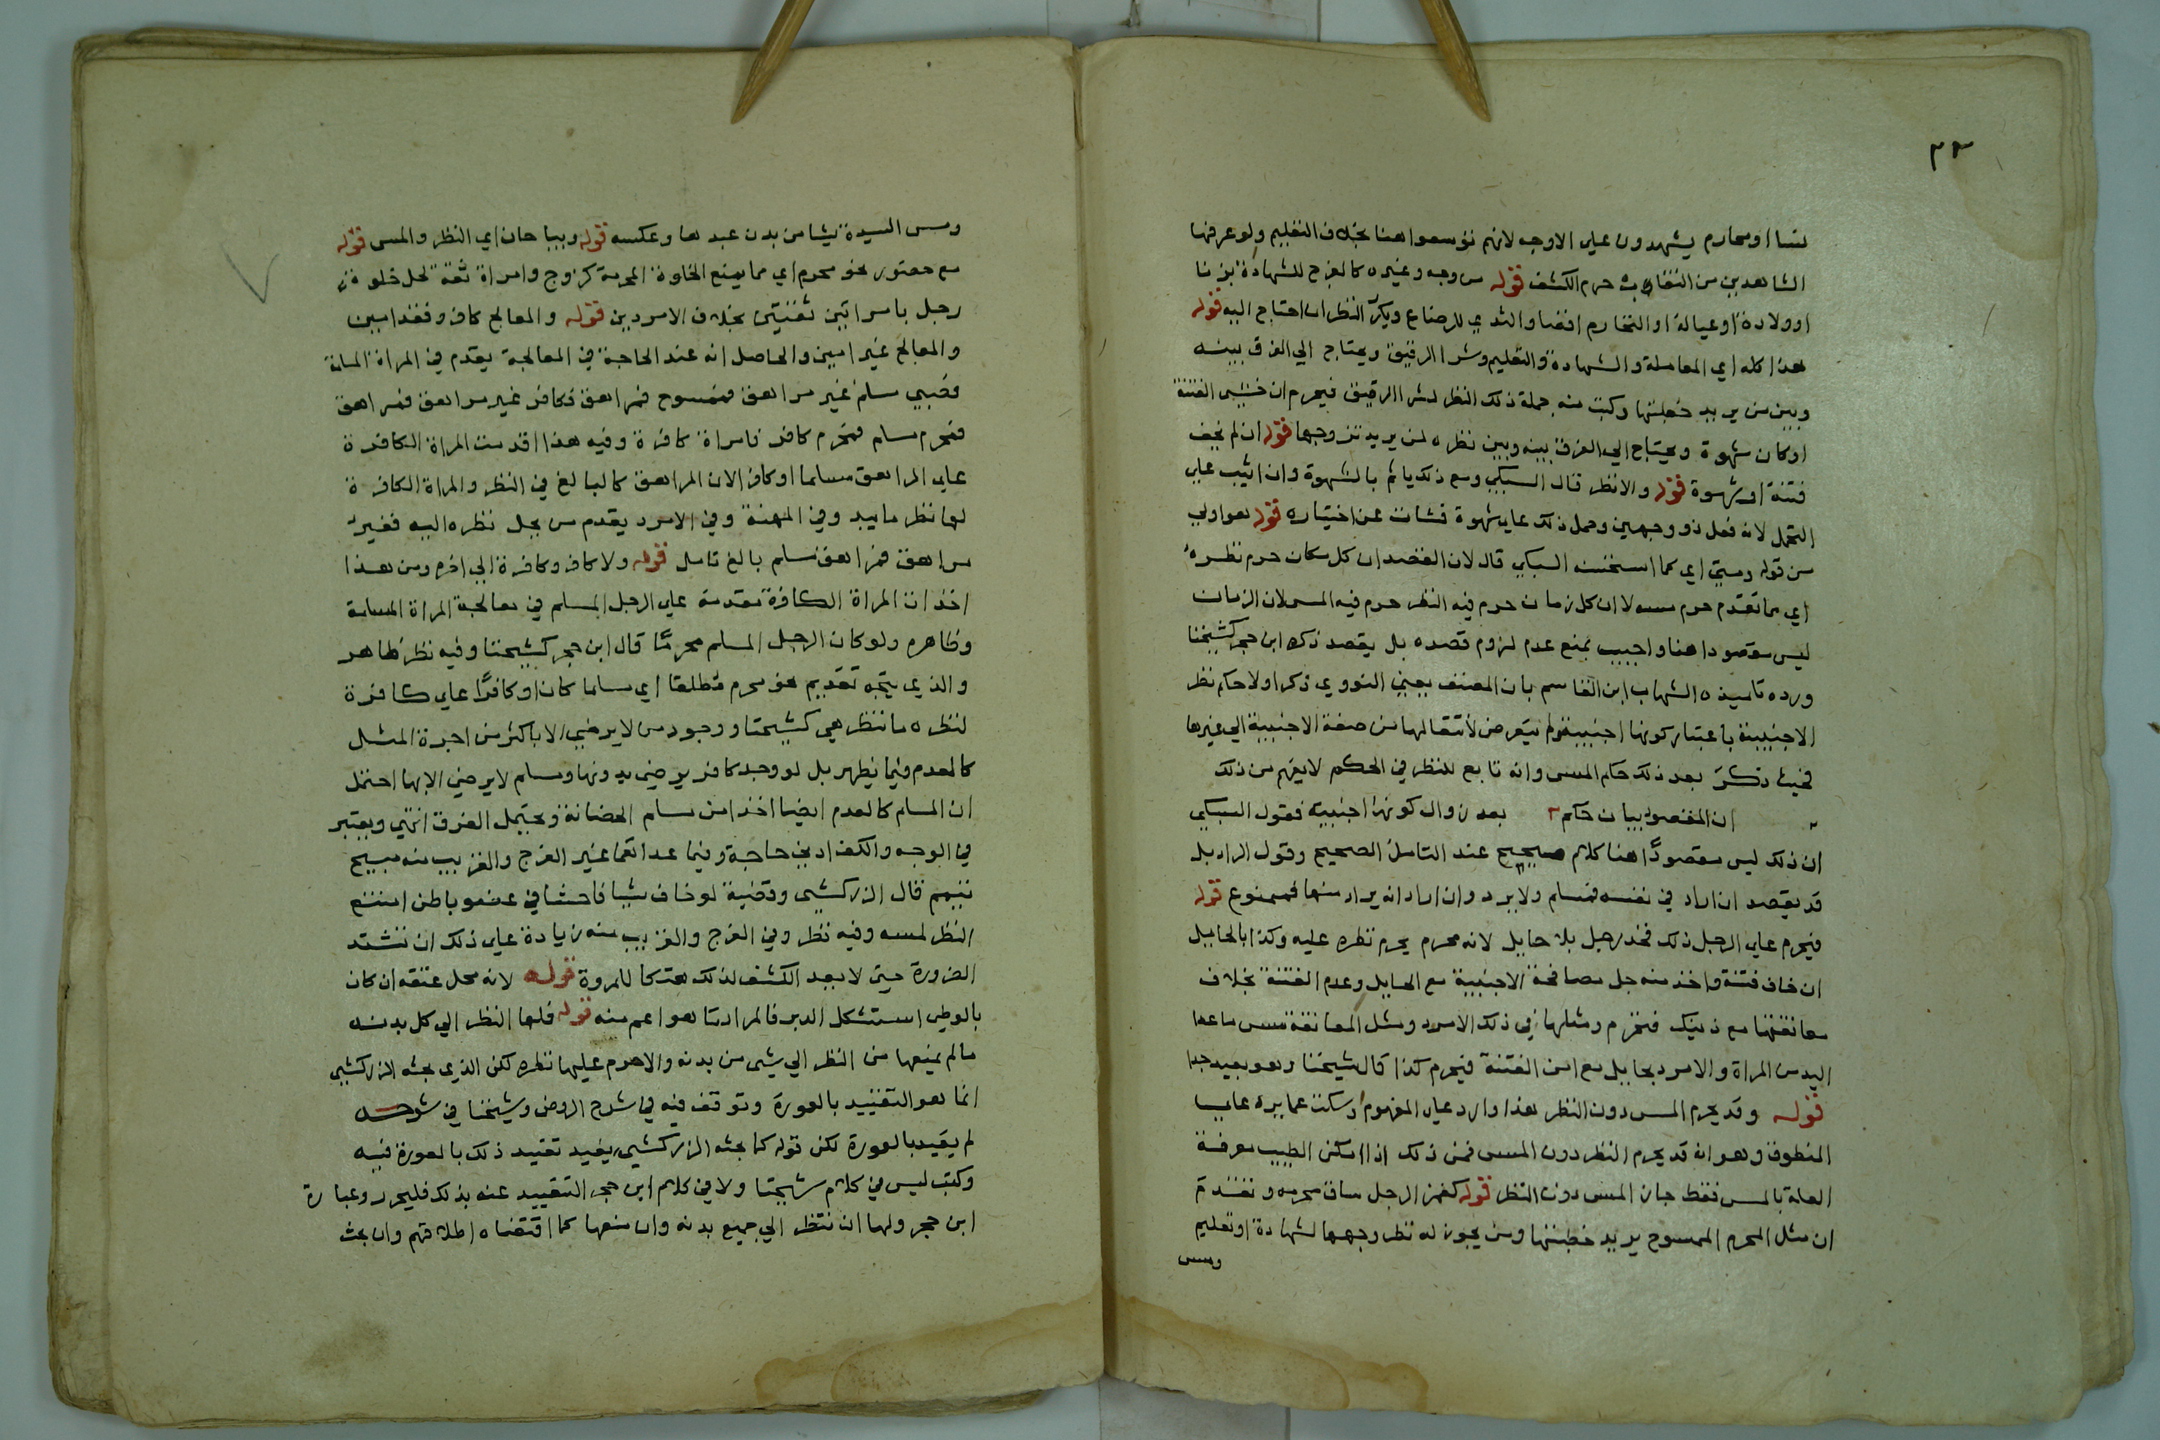 ٣٣
نسا او محارم يشهدون علي الاوجه لانهم توسعوا هنا بخلاف التعليم ولو عرفها
الشاهدين من النقاب حرم الكشف قوله من وجه وغيره كالفرج للشهادة بزنا
او ولادة او عبالة او التحام افضا والثدي للرضاع ويكرر النظر ان احتاج اليه قوله
هذا كله اي المعاملة والشهادة والتعليم وشرا الرقيق ويحتاج الي الفرق بينه
وبين من يريد خطبتها وكتب منه جملة ذلك النظر لشرا الرقيق فيحرم ان خشي الفتنة
او كان شهوة ويحتاج الي الفرق بينه وبين نظره لمن يريد تزوجها قوله ان لم يخف
فتنة او شهوة قوله والا نظر قال السبكي ومع ذلك ياثم بالشهوة وان اثيب علي
التحمل لانه فعل ذو وجهين وحمل ذلك علي شهوة نشات عن اختياره قوله هو اولي
من قوله ومتي اي كما استحسنه السبكي قال لان القصد ان كل مكان حرم نظره
اي مما تقدم حرم مسه لا ان كل زمان حرم فيه النظر حرم فيه المس لان الزمان
ليس مقصودا هنا واجيب بمنع عدم لزوم قصده بل يقصد ذكره ابن حجر كشيخنا
ورده تلميذه الشهاب ابن القاسم بان المصنف يعني النووي ذكر اولا حكم نظر
الاجنبية باعتبار كونها اجنبية ولم يتعرض لانتقالها من صفة الاجنبية الي غيرها
فحيث ذكر بعد ذلك حكم المس وانه تابع للنظر في الحكم لا يفهم من ذلك
ان المقصود بيان حكم بعد زوال كونها اجنبية فقول السبكي
ان ذلك ليس مقصودا هنا كلام صحيح عند التامل الصحيح وقول الراد بل
قد يقصد ان اراد في نفسه فمسلم ولا يرد وان اراد انه يراد منها فممنوع قوله
فيحرم علي الرجل ذلك فخذ رجل بلا حايل لانه محرم يحرم نظره عليه وكذا بالحايل
ان خاف فتنة واخذ منه حل مصافحة الاجنبية مع الحايل وعدم الفتنة بخلاف
معانقتها مع ذينك فتحرم ومثلها في ذلك الامرد ومثل المعانقة مس ما عدا
اليد من المراة والامرد بحايل مع امن الفتنة فيحرم كذا قال شيخنا وهو بعيد جدا
قوله وقد يحرم المس دون النظر هذا وارد علي المفهوم وسكت عما يرد علي
المنطوق وهو انه قد يحرم النظر دون المس فمن ذلك اذا امكن الطبيب معرفة
العلة بالمس فقط جاز المس دون النظر قوله كغمز الرجل ساق محرمه وتقدم
ان مثل المحرم الممسوح يريد خطبتها ومن يجوز له نظر وجهها لشهادة او تعليم
ومس
ومس السيدة شيا من بدن عبدها وعكسه قوله ويباحان اي النظر والمس قوله
مع حضور نحو محرم اي مما يمنع الخلوة المحرمة كزوج وامراة ثقة لحل خلوة
رجل بامراتين ثقتين بخلاف الامردين قوله والمعالج كافر وفقد امين
والمعالج غير امين والحاصل انه عند الحاجة في المعالجة يقدم في المراة المسلمة
فصبي مسلم غير مراهق فممسوح فمراهق فكافر غير مراهق فمراهق
فمحرم مسلم فمحرم كافر فامراة كافرة وفيه هذا اقدمت المراة الكافرة
علي المراهق مسلما او كافرا لان المراهق كالبالغ في النظر والمراة الكافرة
لها نظر ما يبدو في المهنة وفي الامرد يقدم من يحل نظره اليه فغير
مراهق فمراهق فمسلم بالغ تامل قوله ولا كافر وكافرة الي اخره ومن هذا
اخذ ان المراة الكافرة مقدمة علي الرجل المسلم في معالجة المراة المسلمة
وظاهره ولو كان الرجل المسلم محرما قال ابن حجر كشيخنا وفيه نظر ظاهر
والذي يتجه تقديم نحو محرم مطلقا اي مسلما كان او كافرا علي كافرة
لنظره ما تنظر هي كشيخنا ووجود من لا يرضي الا باكثر من اجرة المثل
كالعدم فيما يظهر بل لو وجد كافر يرضي بدونها ومسلم لا يرضي الا بها احتمل
ان المسلم كالعدم ايضا اخذا من مسلم الحضانة ويحتمل الفرق انتهي ويعتبر
في الوجه والكف ادني حاجة وفيما عداهما غير الفرج والقريب منه مبيح
تيمم قال الزركشي وقضية لو خاف شيا فاحشا في عضو باطن امتنع
النظر لمسه وفيه نظر وفي الفرج والقريب منه زيادة علي ذلك ان تشتد
الضرورة حتي لا يعد الكشف لذلك هتكا للمروة قوله لانه محل عتقه ان كان
بالوطي استشكل الدبر فالمراد بما هو اعم منه قوله فلها النظر الي كل بدنه
ما لم يمنعها من النظر الي شي من بدنه والا حرم عليها نظره لكن الذي بحثه الزركشي
انما هو التقييد بالعورة وتوقف فيه في شرح الروض وشيخنا في شرحه
لم يقيد بالعورة لكن قوله كما بحثه الزركشي يفيد تقييد ذلك بالعورة فيه
وكتب ليس في كلام شيخنا ولا في كلام ابن حجر التقييد عنه بذلك فليحرر وعبارة
ابن حجر ولها ان تنظر الي جميع بدنه وان منعها كما اقتضاه اطلاقهم وان بحث